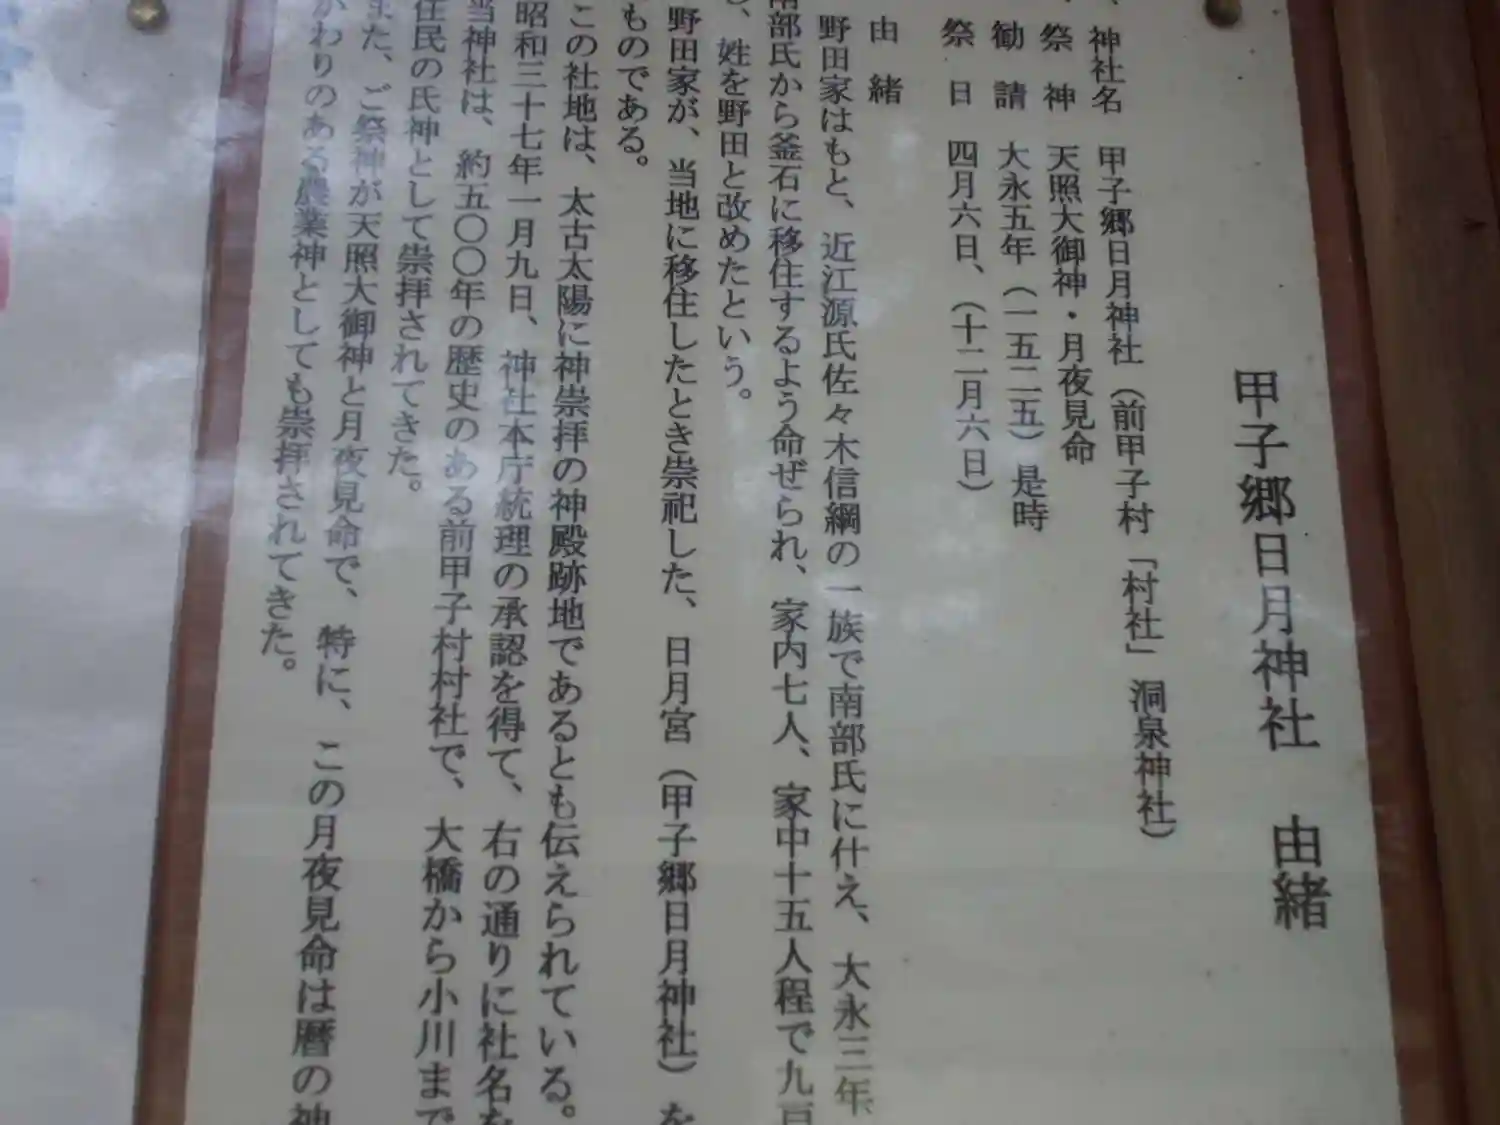 甲子郷日月神社 由緒
、神社名 甲子郷日月神社（前甲子村「村社」洞泉神社）
、祭神 天照大御神・月夜見命
勧請 大永五年（一五二五）是時
祭日 四月六日、（十二月六日）
由緒
野田家はもと、近江源氏佐々木信綱の一族で南部氏に仕え、大永三年
南部氏から釜石に移住するよう命ぜられ、家内七人、家中十五人程で九戸
、姓を野田と改めたという。
野田家が、当地に移住したとき崇祀した、日月宮（甲子郷日月神社）を
ものである。
この社地は、太古太陽に神崇拝の神殿跡地であるとも伝えられている。
昭和三十七年一月九日、神社本庁統理の承認を得て、右の通りに社名を
当神社は、約五〇〇年の歴史のある前甲子村村社で、大橋から小川まで
住民の氏神として崇拝されてきた。
また、ご祭神が天照大御神と月夜見命で、特に、この月夜見命は暦の神
かわりのある農業神としても崇拝されてきた。